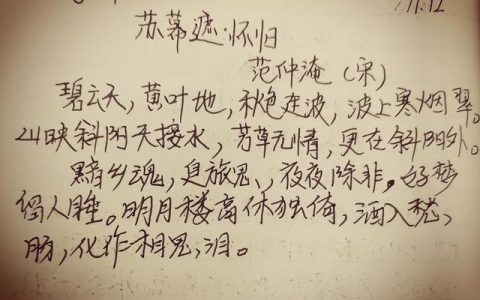 11.12
苏幕遮·怀旧
范仲淹（宋）
碧云天，黄叶地，秋色连波，波上寒烟翠。
山映斜阳天接水，芳草无情，更在斜阳外。
黯乡魂，追旅思，夜夜除非，好梦
留人睡。明月楼高休独倚，酒入愁
肠，化作相思泪。